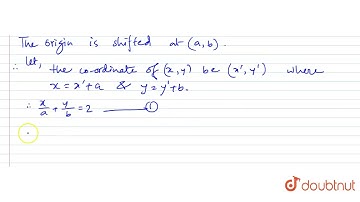 The origin is shifted at (a,b).
∴ let, the co-ordinate of (x,y) be (x',y') where
x = x'+a & y = y'+b.
∴ x/a + y/b = 2 ———①
doubtnut